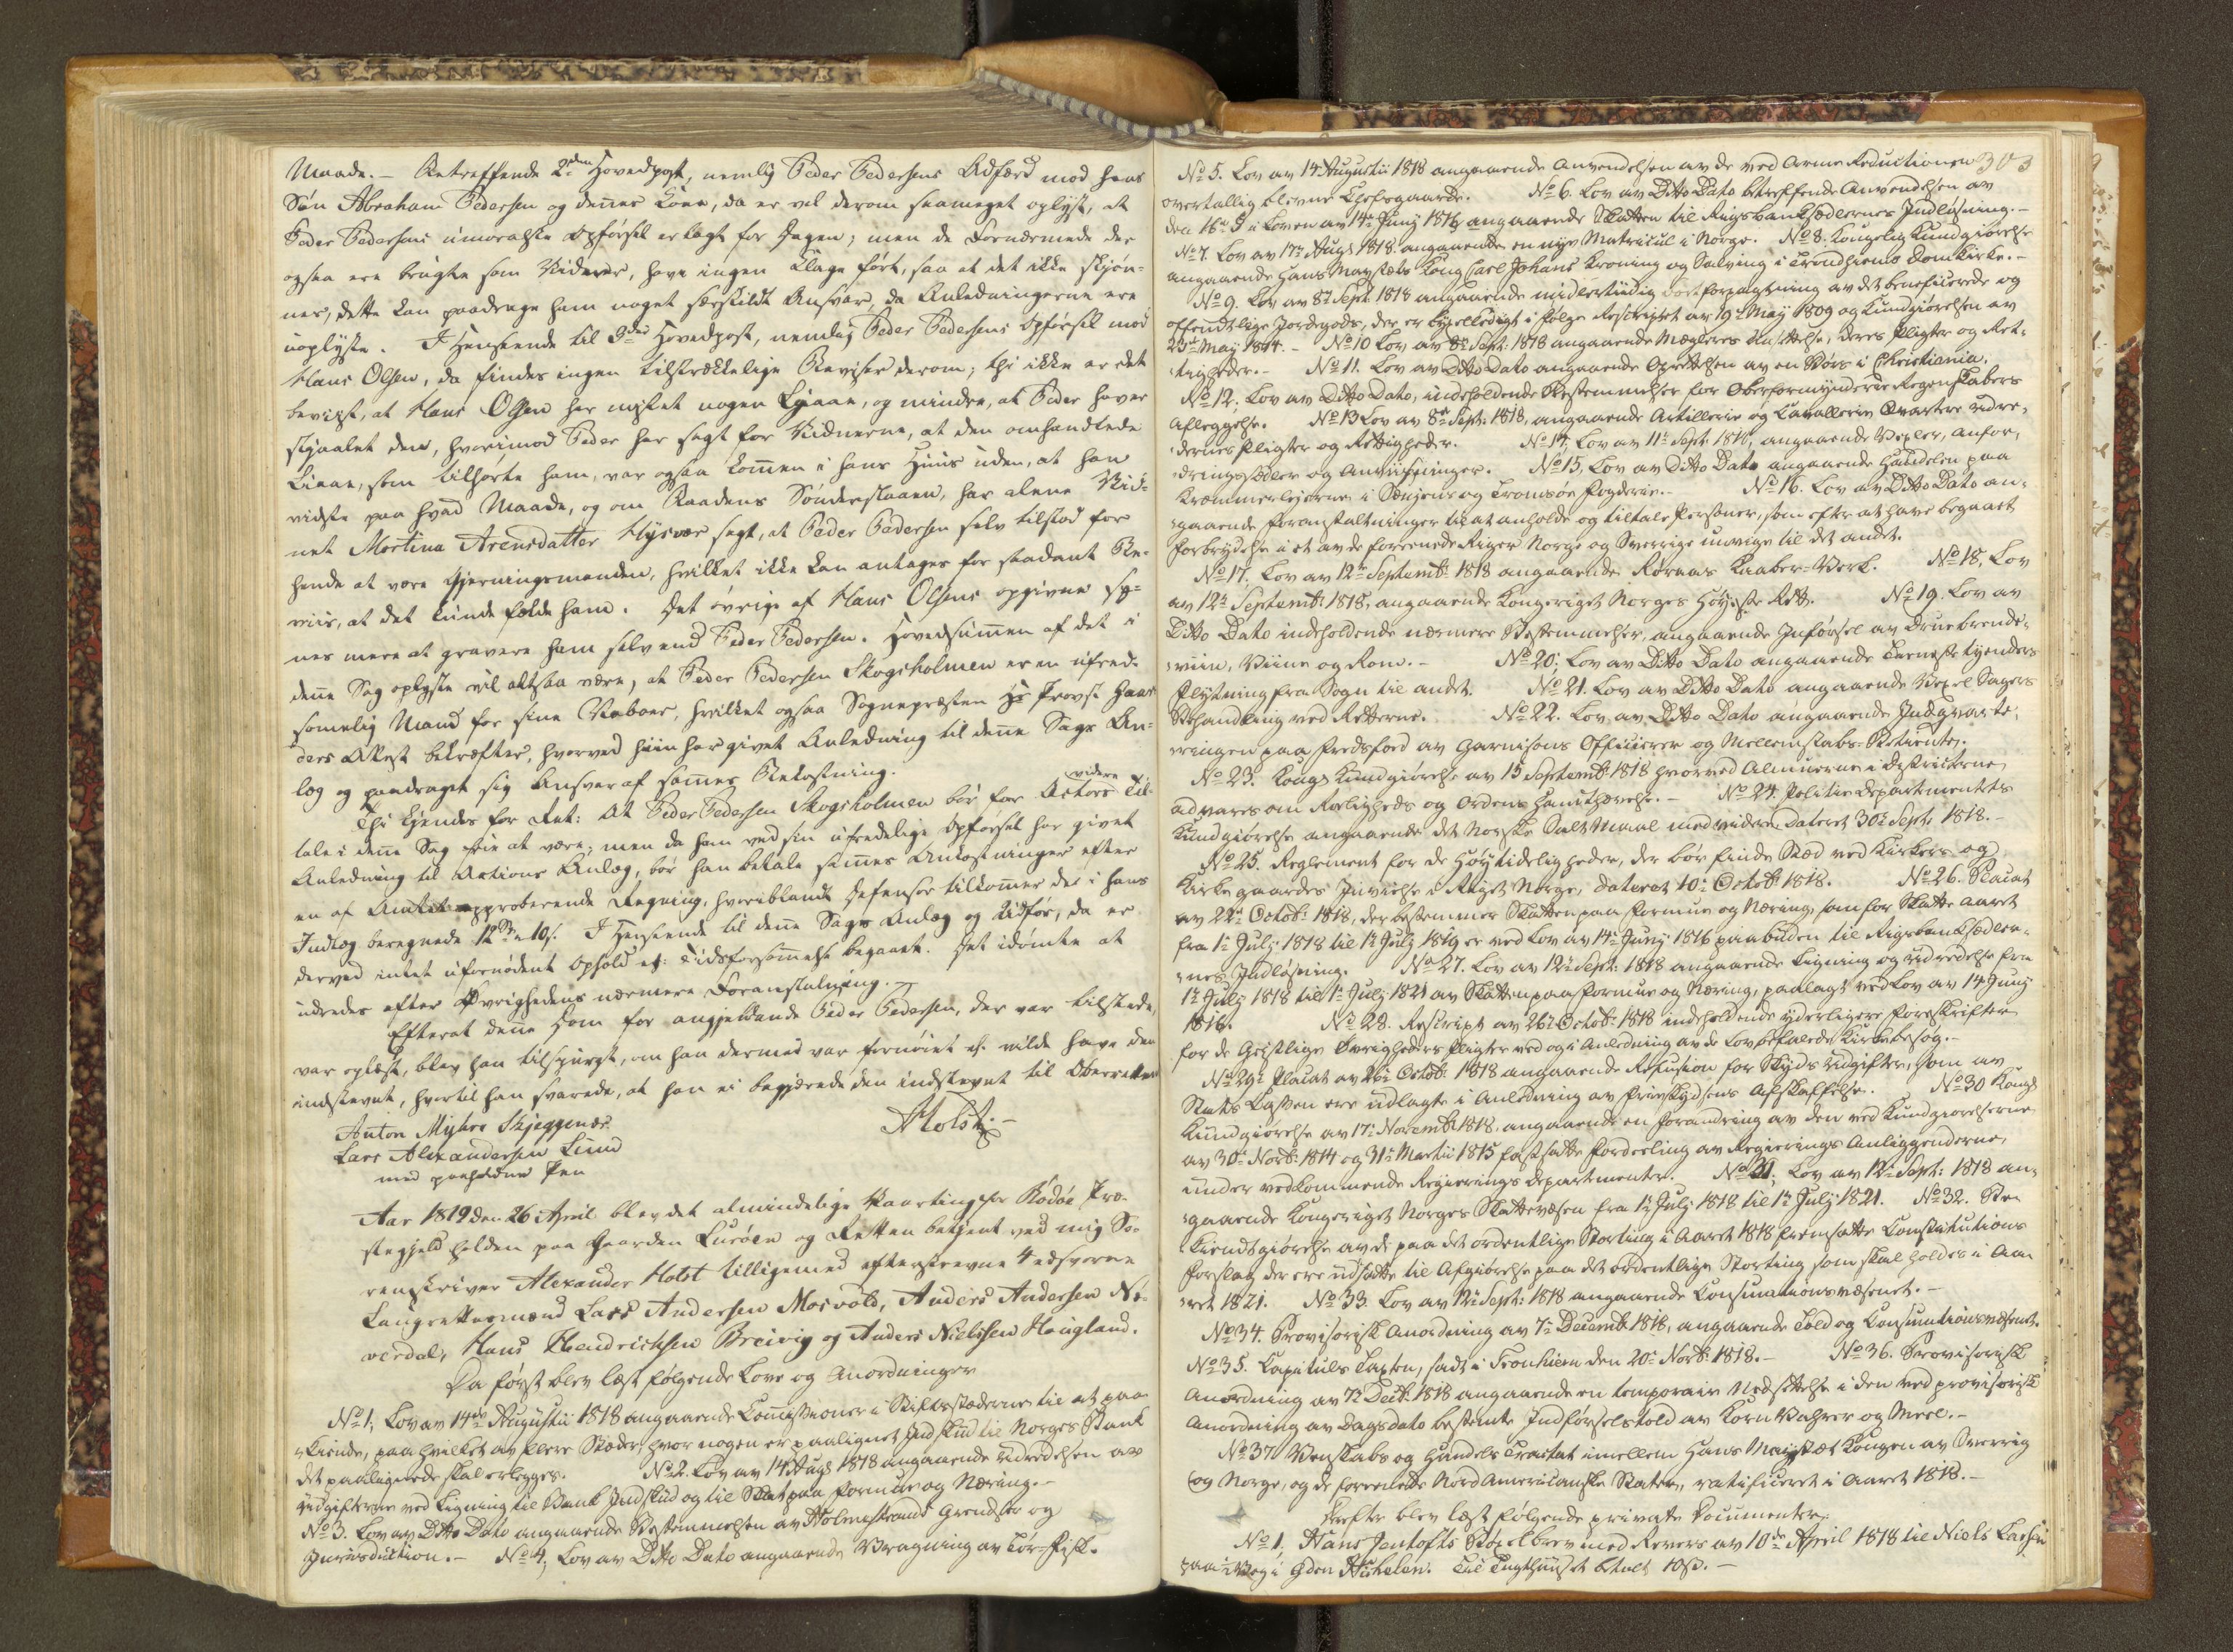 Maade. – Betreffende 2den Hovedpost, nemlig Peder Pedersens Adfærd mod hans
Søn Abraham Pedersen og dennes Kone, da er vel derom saameget oplyst, at
Peder Pedersens umoralske Opførsel er lagt for Dagen; men de Fornærmede der
ogsaa ere brugte som Vidner, have ingen Klage ført, saa at det ikke skjøn-
nes, dette kan paadrage ham noget særskildt Ansvar, da Anledningerne ere
uoplyste. I Henseende til 3die Hovedpost, nemlig Peder Pedersens Opførsel mod
Hans Olsen, da findes ingen tilstrækkelige Beviser derom; thi ikke er det
bevist, at Hans Olsen har mistet nogen Liaae, og mindre, at Peder haver
stjaalet den, hvorimod Peder har sagt for Vidnerne, at den omhandlede
Liaae, som tilhørte ham, var ogsaa kommen i hans Huus uden, at han
vidste paa hvad Maade, og om Baadens Sønderslaaen, har alene Vid-
net Martina Arensdatter Hysvær sagt, at Peder Pedersen selv tilstod for
hende at være Gjerningsmanden, hvilket ikke kan antages for saadant Be-
viis, at det kunde fælde ham. Det øvrige af Hans Olsens opgivne sy-
nes mere at gravere ham selv end Peder Pedersen. Hovedsummen af det i
denne Sag oplyste vil altsaa være, at Peder Pedersen Skogsholmen er en ufred-
sommelig Mand for sine Naboer, hvilket ogsaa Sognepræsten Hr Provst Gaar
ders Attest bekræfter, hvorved hiin har givet Anledning til denne Sags An-
læg og paadraget sig Ansvar af sammes Bekostning.
Thi kjendes for Ret: At Peder Pedersen Skogsholmen bør for Actors videre Til-
tale i denne Sag frie at være; men da han ved sin ufredelige Opførsel har givet
Anledning til Actions Anlæg, bør han betale sammes Omkostninger efter
en af Amtet approberende Regning, hvoriblandt Defensor tilkommer det i hans
Indlæg beregnede 12 Sp. 10 s. I Henseende til denne Sags Anlæg og Udfør, da er
derved intet ufornødent Ophold el: Tidsforsømmelse begaaet. Det idømte at
udredes efter Øvrighedens nærmere Foranstaltning.
Efterat denne Dom for angjeldende Peder Pedersen, der var tilstede,
var oplæst, blev han tilspurgt, om han dermed var fornøiet el. vilde have den
indstevnt, hvortil han svarede, at han ei begjærede den indstevnt til Oberretten
AHolst. –
Anton Myhre Skjeggenæs
Lars Alexandersen Lund
med paaholdne Pen
Aar 1819 den 26 April blev det almindelige Vaarting for Rødøe Præ-
stegjeld holden paa Gaarden Lurøen og Retten betjent ved mig So-
renskriver Alexander Holst tilligemed efterstrevne 4 edsvorne
Laugrettesmænd Lars Andersen Mosvold, Anders Andersen No-
verdal, Hans Hendrichsen Breivig og Anders Nielssen Haugland.
Da først blev læst følgende Love og Anordninger
No 1, Lov av 14de Augustii 1818 angaaende Commissioner i Stiftsstæderne til at paa-
kiende, paa hvilket av flere Stæder, hvor nogen er paalignet Indskud til Norges Bank
det paalignede skal erlegges. No 2. Lov av 14 Augs 1818 angaaende Udredelsen av
Udgifterne ved Ligning til Bank Indskud og til Skat paa Formue og Næring. –
No 3. Lov av Ditto Dato angaaende Bestemmelsen av Holmestrands Grendser og
Jurisdiction. – No 4, Lov av Ditto Dato angaaende Vragning av Tør-Fisk.
303
No 5. Lov av 14 Augustii 1818 angaaende Anvendelsen av de ved Armee Reductionen
overtallig blevne Chefsgaarde. No 6. Lov av Ditto Dato betreffende Anvendelsen av
den 16de § i Loven av 14de Junij 1816 angaaende Skatten til Rigsbanksedlernes Indløsning. –
No 7. Lov av 17de Augs 1818 angaaende en nye Matricul i Norge. No 8. Kongelig Kundgiørelse
angaaende Hans Mayestæts Kong Carl Johans Kroning og Salving i Trondhiems Domkirke. –
No 9. Lov av 8de Sept. 1818 angaaende midlertiidig Bortforpagtning av det beneficerede og
offendtlige Jordegods, der er byxelledigt i Følge Rescriptet av 19 May 1809 og Kundgiørelsen av
23de May 1814. – No 10 Lov av 8de Sept. 1818 angaaende Mægleres Ansættelse, deres Pligter og Ret-
tigheder. – No 11. Lov av Ditto Dato angaaende Oprettelsen av en Børs i Christiania.
No 12, Lov av Ditto Dato, indeholdende Bestemmelser for Oberformynderie Regenskabers
Afleggelse. No 13 Lov av 8de Sept. 1818, angaaende Artillerie og Cavallerie Qvarteer Udre-
dernes Pligter og Rettigheder. No 14. Lov av 11te Sept. 1818, angaaende Vexler, Anfor-
dringssedler og Anviisninger. No 15, Lov av Ditto Dato angaaende Handelen paa
Kræmmerleyerne i Senjens og Tromsøe Fogderie. – No 16. Lov av Ditto Dato an-
gaaende Foranstaltninger til at anholde og tiltale Personer, som efter at have begaaet
Forbrydelse i et av de forenede Riger Norge og Sverrige undvige til det andet.
No 17. Lov av 12te Septemb: 1818 angaaende Røraas Kaaber-Verk. No 18, Lov
av 12te Septemb: 1818, angaaende Kongeriget Norges Høyeste Ret. No 19. Lov av
Ditto Dato indeholdende nærmere Bestemmelser, angaaende Indførsel av Druebrende-
viin, Viine og Rom. – No 20, Lov av Ditto Dato angaaende Tieneste tyenders
Flytning fra Sogn til andet. No 21. Lov av Ditto Dato angaaende Vexel Sagers
Behandling ved Retterne. No 22. Lov av Ditto Dato angaaende Indqvarte-
ringen paa Fredsfod av Garnisons Officierer og Mellemstabs-Betiente.
No 23. Kongs Kundgiørelse av 15 Septemb: 1818 hvorved Almuerne i Districterne
advares om Roeligheds og Ordens Hæmthævelse. – No 24. Politie Departementets
Kundgiørelse angaaende det Norske Salt Maal med videre Dateret 30te Sept. 1818. –
No 25. Reglement for de Høytideligheder, der bør finde Sted ved Kirkers og
Kirkegaardes Indvielse i Riget Norge, dateret 10de Octob: 1818. No 26. Placat
av 22de Octob: 1818, der bestemmer Skatten paa Formue og Næring, som for Skatte Aaret
fra 1te July 1818 til 1te July 1819 er ved Lov av 14de Juny 1816 paabuden til Rigsbanksedler-
nes Indløsning. No 27. Lov av 12te Sept: 1818 angaaende Ligning og Udredelse fra
1te July 1818 til 1te July 1821 av Skatten paa Formue og Næring, paalagt ved Lov av 14 Juny
1816. No 28. Rescript av 26de Octob: 1818 indeholdende yderligere Forskrifter
for de Geistlige Øvrigheders Pligter ved og i Anledning av de Lovbefalede Kirkebesøg. –
No 29. Placat av 26de Octob: 1818 angaaende Refusion for Skyds Udgifter, som av
Stats Cassen ere udlagte i Anledning av Frieskydsens Afskaffelse. No 30 Kongs
Kundgiørelse av 17de Novemb: 1818, angaaende en Forandring av den ved Kundgiørelserne
av 30te Novb: 1814 og 31te Martii 1815 fastsatte Fordeeling av Regierings Anliggenderne
under vedkommende Regierings Departementer. No 31, Lov av 12te Sept: 1818 an-
gaaende Kongeriget Norges Skattevæsen fra 1te July 1818 til 1te July 1821. No 32. Be-
kiendtgiørelse av de paa det ordentlige Storting i Aaret 1818 fremsatte Constitutions
Forslag der ere udsatte til Afgiørelse paa det ordentlige Storting som skal holdes i Aa-
ret 1821. No 33. Lov av 12te Sept: 1818 angaaende Consumtionsvæsenet. –
No 34. Provisorisk Anordning av 7de Decemb: 1818, angaaende Told og Consumtionsvæsenet.
No 35. Capituls Taxten, sadt i Tronhiem den 20de Novb: 1818. – No 36. Provisorisk
Anordning av 7de Decb: 1818 angaaende en temporair Nedsettelse i den ved provisorisk
Anordning av Dagsdato bestemte Indførselstold av Korn Vahrer og Meel. –
No 37 Venskabs og Handels Tractat imellem Hans Mayestæt Kongen av Sverrig
og Norge, og de forenede Nord Americanske Stater, ratificeret i Aaret 1818. –
Derefter blev læst følgende private Documenter.
No 1, Hans Jentofts Bøxelbrev med Revers av 10de April 1818 til Niels Larsen
paa i Gden Til Tugthuuset betalt 10 s. –